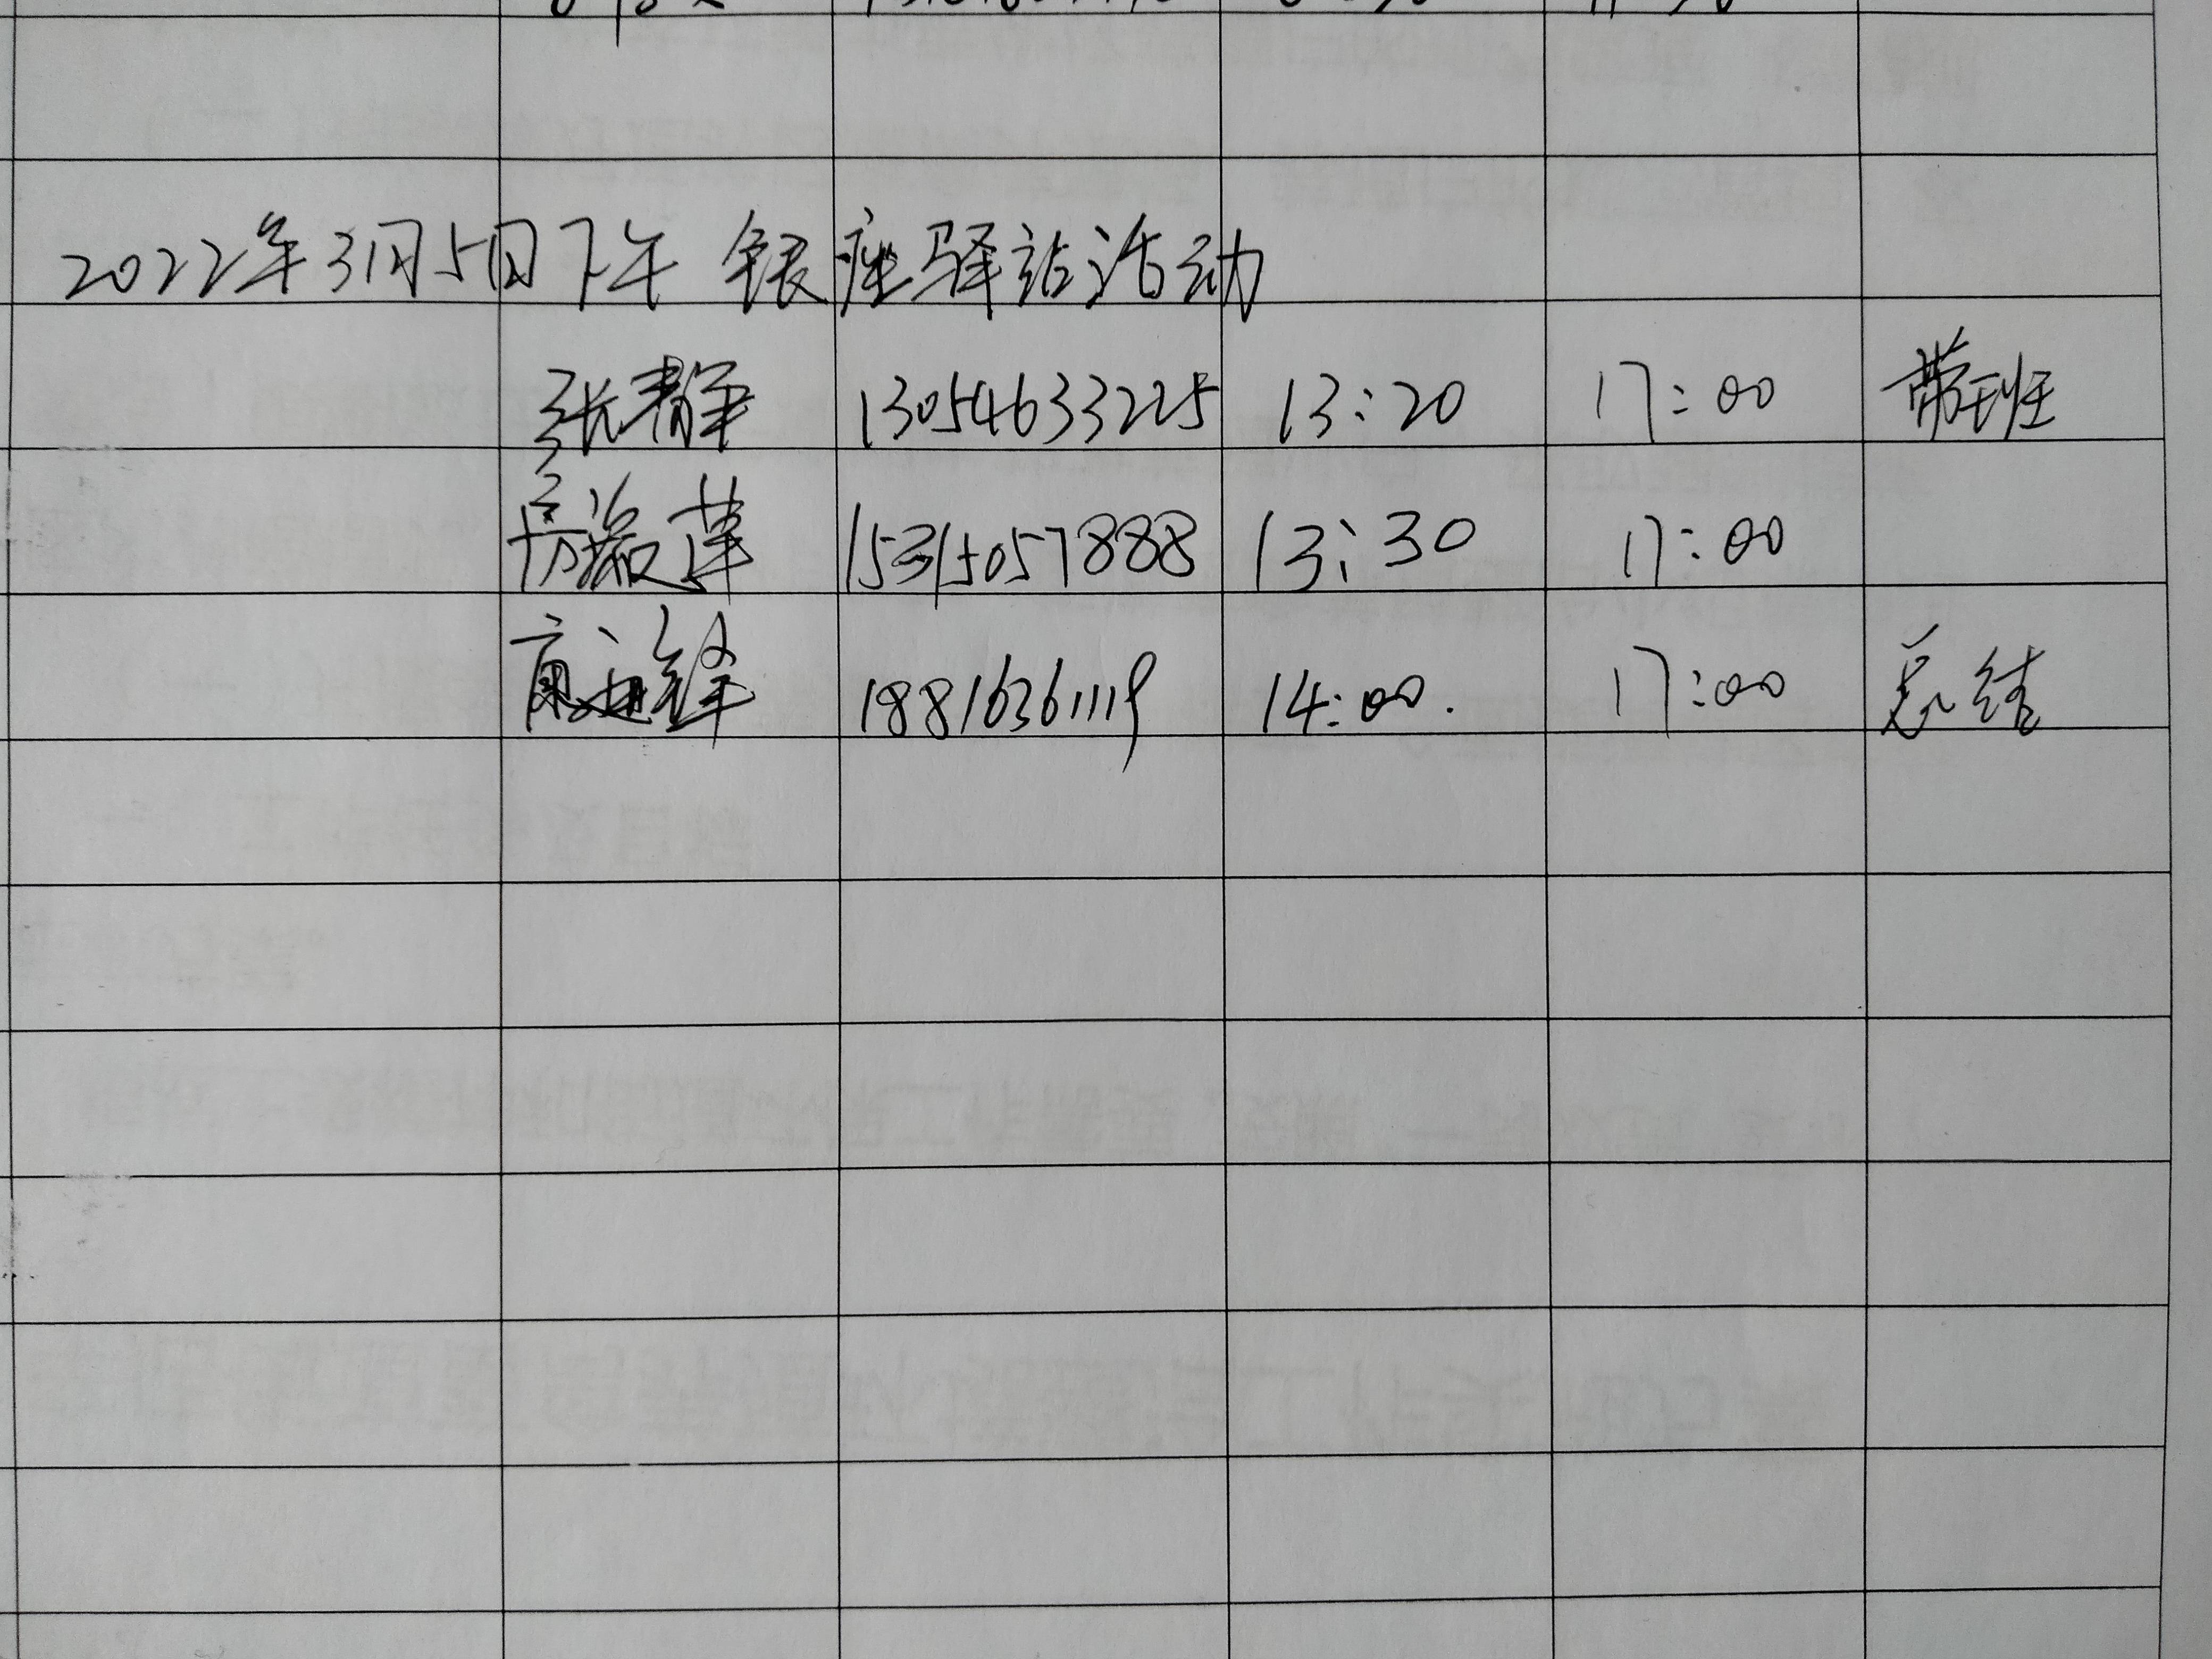 2022年3月5日下午 银座驿站活动
张静 13054633225 13:20 17:00 带班
15315057888 13:30 17:00
18816361119 14:00. 17:00 总结